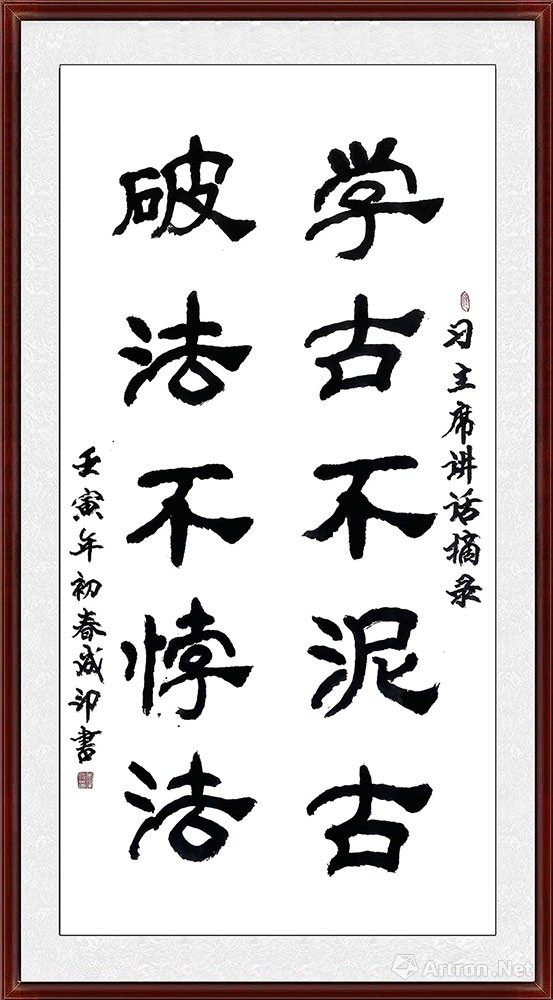 习主席讲话摘录
学古不泥古
破法不悖法
壬寅年初春成印書
Artron.Net